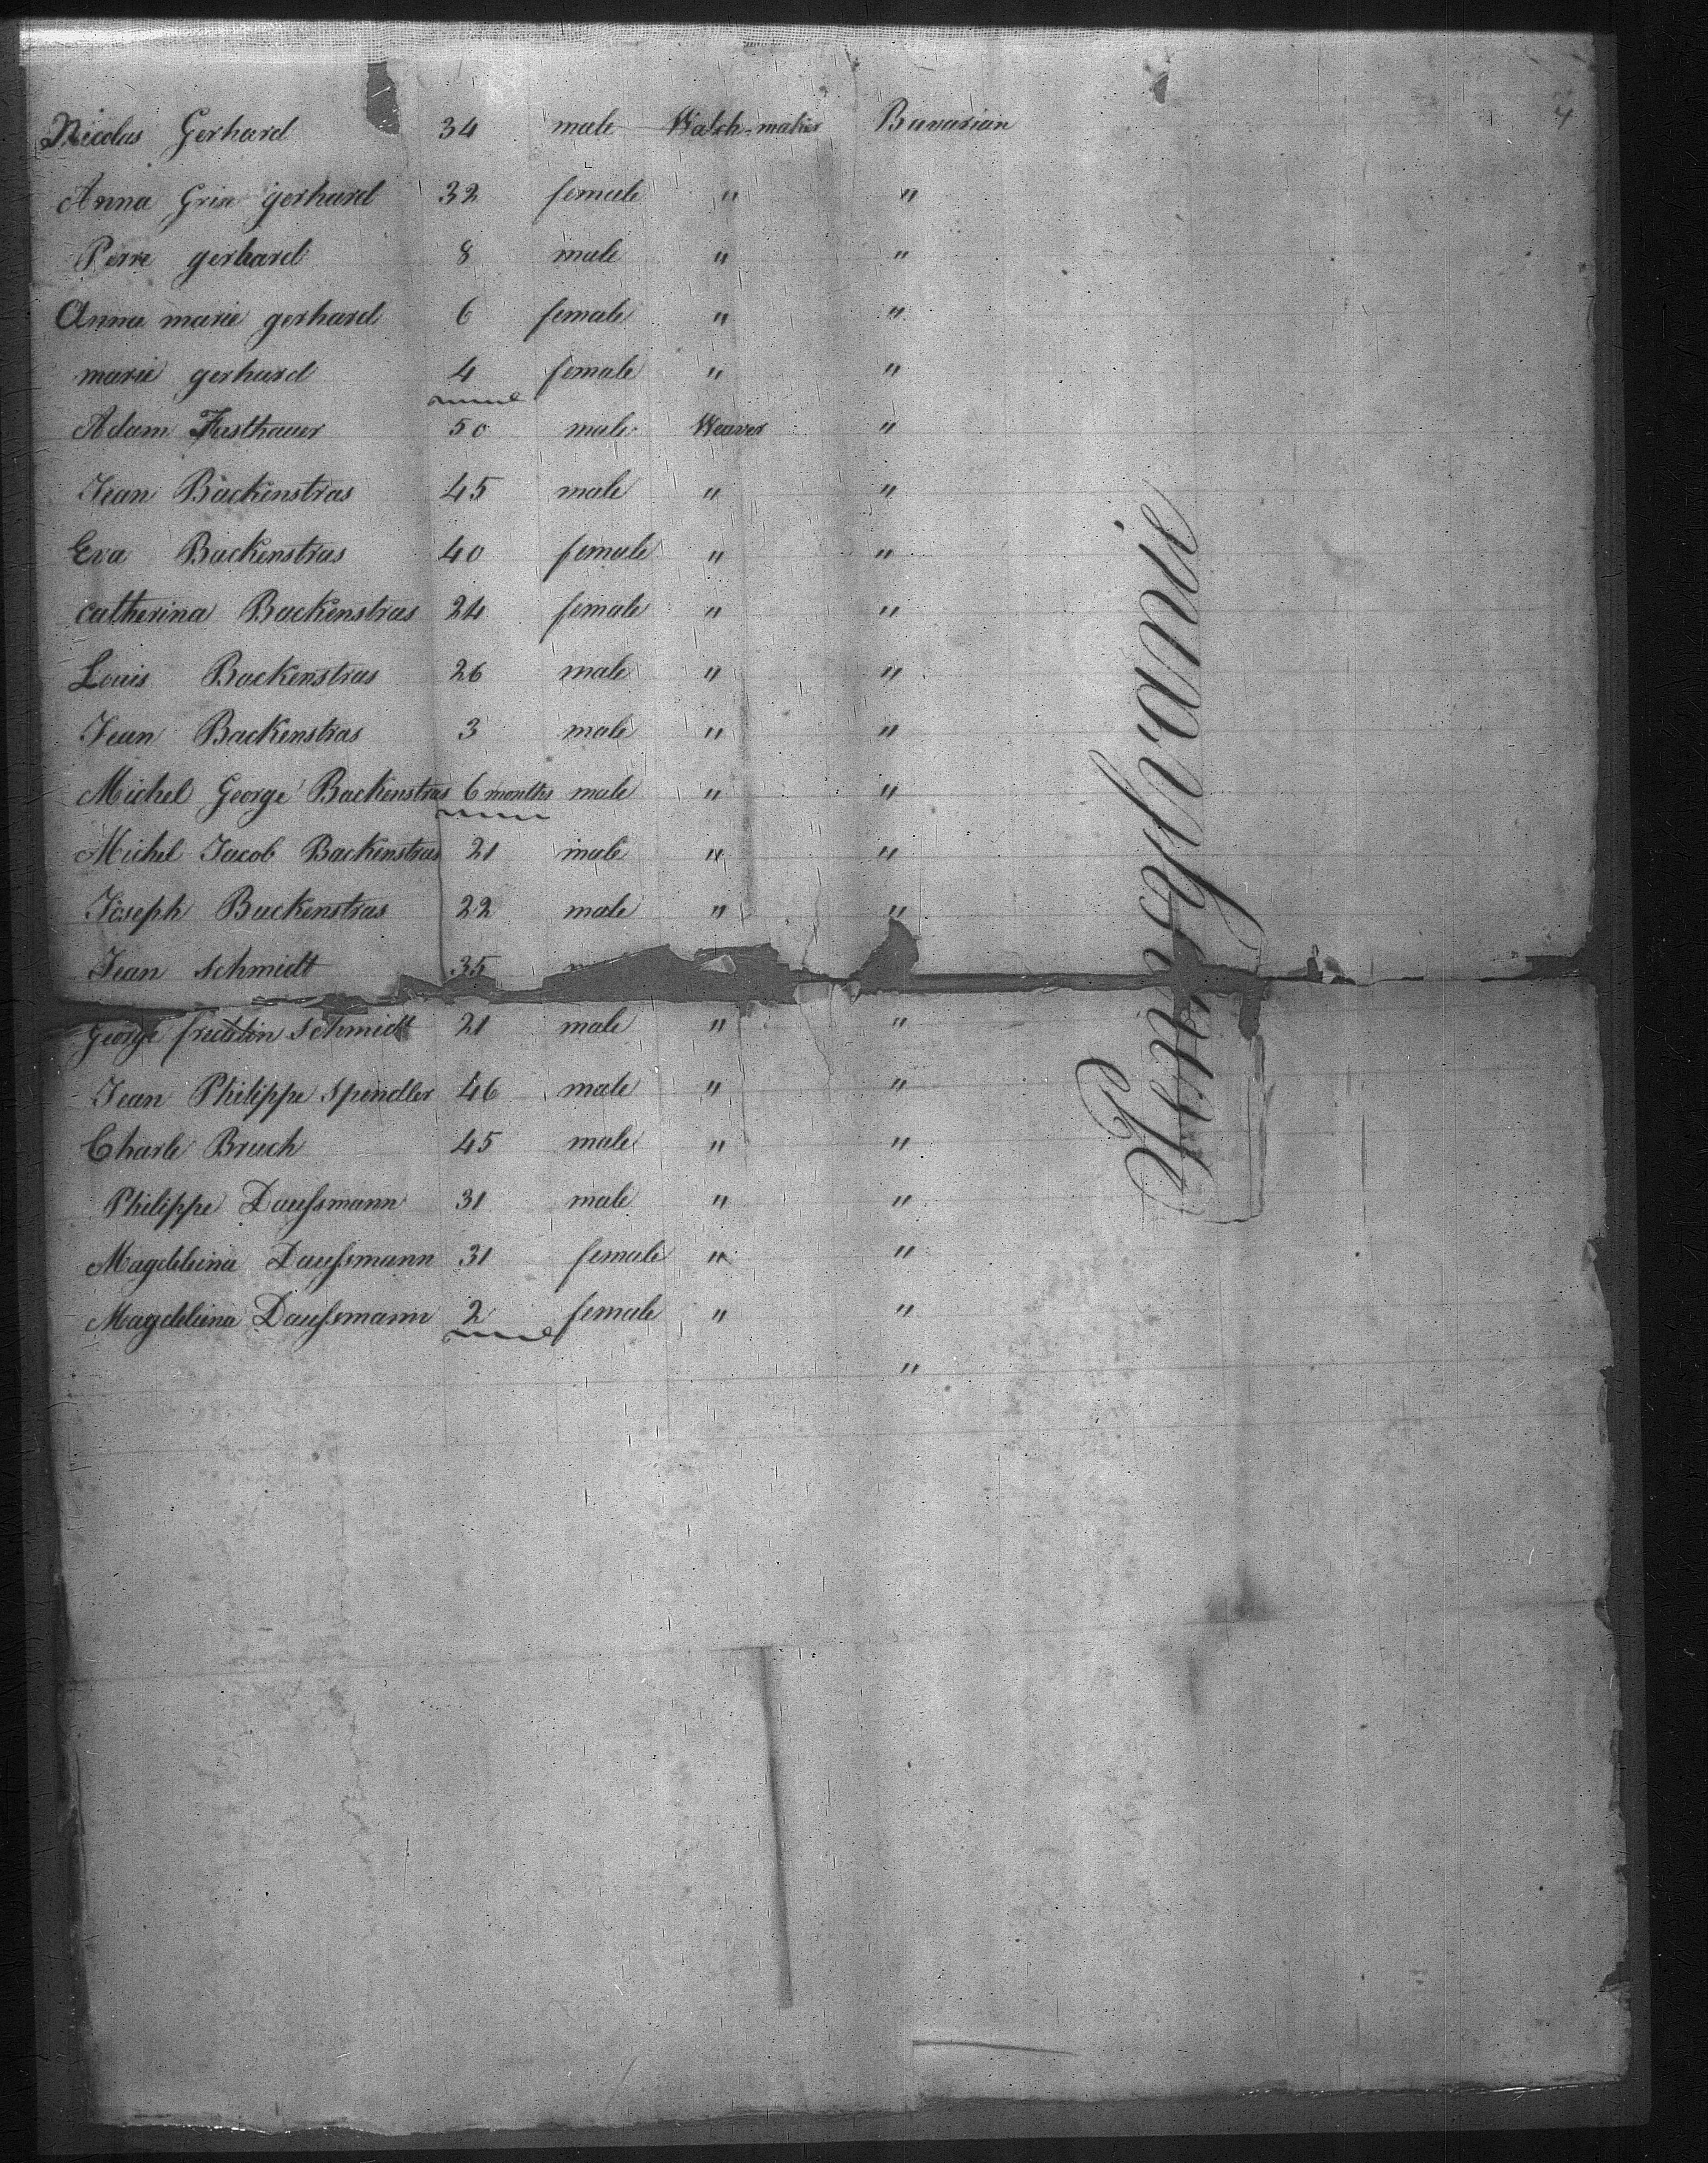 4
Nicolas Gerhard 34 male Watch-maker Bavarian
Anna Grin gerhard 32 female " "
Pierre gerhard 8 male " "
Anna marie gerhard 6 female " "
marie gerhard 4 female " "
Adam 50 male Weaver "
Jean Backenstras 45 male " "
Eva Backenstras 40 female " "
catherina Backenstras 24 female " "
Louis Backenstras 26 male " "
Jean Backenstras 3 male " "
Michel George Backenstras 6 months male " "
Michel Jacob Backenstras 21 male " "
Joseph Backenstras 22 male " "
Jean schmidt 35
George schmidt 21 male " "
Jean Philippe spendler 46 male " "
Charle Bruch 45 male " "
Philippe Daussmann 31 male " "
Magdelina Daussmann 31 female " "
Magdelina Daussmann 2 female " "
"